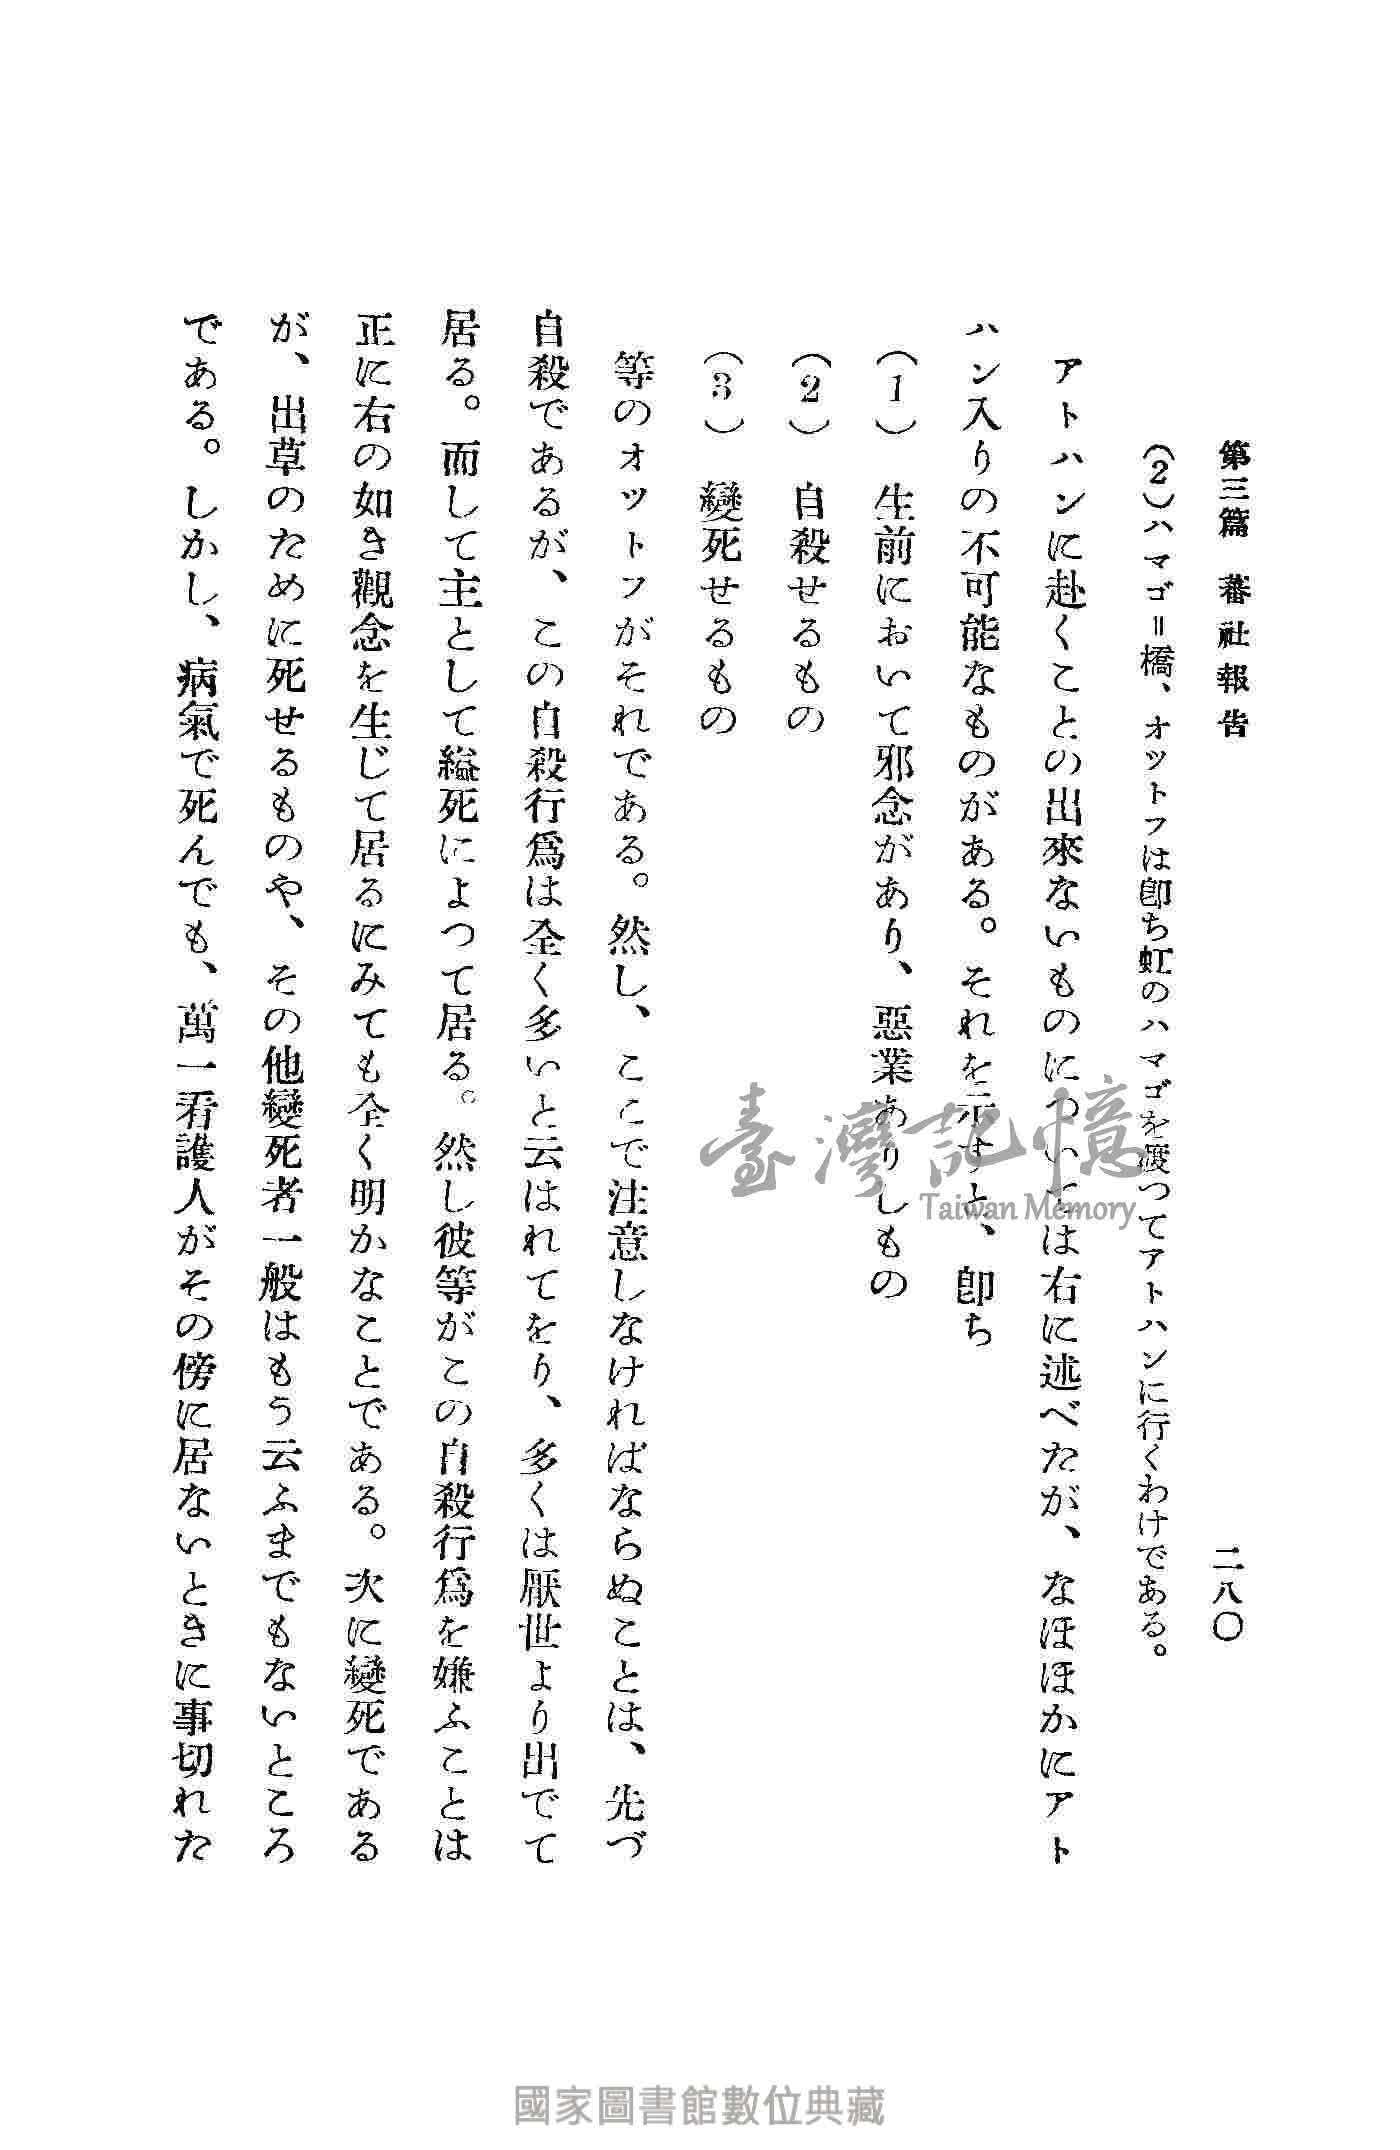 第三篇 蕃社報告 二八〇
（2）ハマゴ＝橋、オットフは卽ち虹のハマゴを渡つてアトハンに行くわけである。
アトハンに赴くことの出來ないものについては右に述べたが、なほほかにアト
ハン入りの不可能なものがある。それを示すと、卽ち
（1） 生前において邪念があり、惡業ありしもの
（2） 自殺せるもの
（3） 變死せるもの
等のオットフがそれである。然し、ここで注意しなければならぬことは、先づ
自殺であるが、この自殺行爲は全く多いと云はれてをり、多くは厭世より出でて
居る。而して主として縊死によつて居る。然し彼等がこの自殺行爲を嫌ふことは
正に右の如き觀念を生じて居るにみても全く明かなことである。次に變死である
が、出草のために死せるものや、その他變死者一般はもう云ふまでもないところ
である。しかし、病氣で死んでも、萬一看護人がその傍に居ないときに事切れた
臺灣記憶
Taiwan Memory
國家圖書館數位典藏